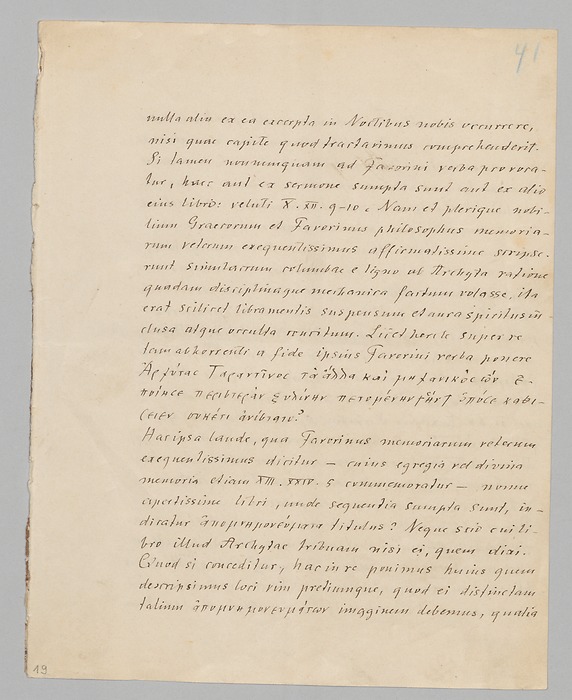 41
nulla alia ex ea excerpta in Noctibus nobis occurrere,
nisi quae capite quod tractavimus comprehenderit.
Si tamen nonnunquam ad Favorini verba provoca-
tur, haec aut ex sermone sumpta sunt aut ex alio
eius libro: veluti X. XII. 9-10. Nam et plerique nobi-
lium Graecorum et Favorinus philosophus memoria-
rum veterum exequentissimus affirmatissime scripse-
runt simulacrum columbae e ligno ab Archyta ratione
quadam disciplinaque mechanica factum volasse, ita
erat scilicet libramentis suspensum et aura spiritus in
clusa atque occulta concitum. Licet hercle super re
tam abhorrenti a fide ipsius Favorini verba ponere
Ἀρχύτας Ταραντῖνος τὰ ἄλλα καὶ μηχανικὸς ὢν ἐ-
ποίησε περιστερὰν ξυλίνην πετομένην ἣν ὁπότε καθί-
σειεν οὐκέτι ἀνίστατο?
Hac ipsa laude, qua Favorinus memoriarum veterum
exequentissimus dicitur – cuius egregia vel divina
memoria etiam XIII. XXIV. 5 commemoratur – nonne
apertissime libri, unde sequentia sumpta sunt, in-
dicatur ἀπομνημονεύματα titulus? Neque scio cui li-
bro illud Archytae tribuam nisi ei, quem dixi.
Quod si conceditur, hac in re ponimus huius quem
descripsimus loci vim pretiumque, quod ei distinctam
talium ἀπομνημονευμάτων imaginem debemus, qualia
19